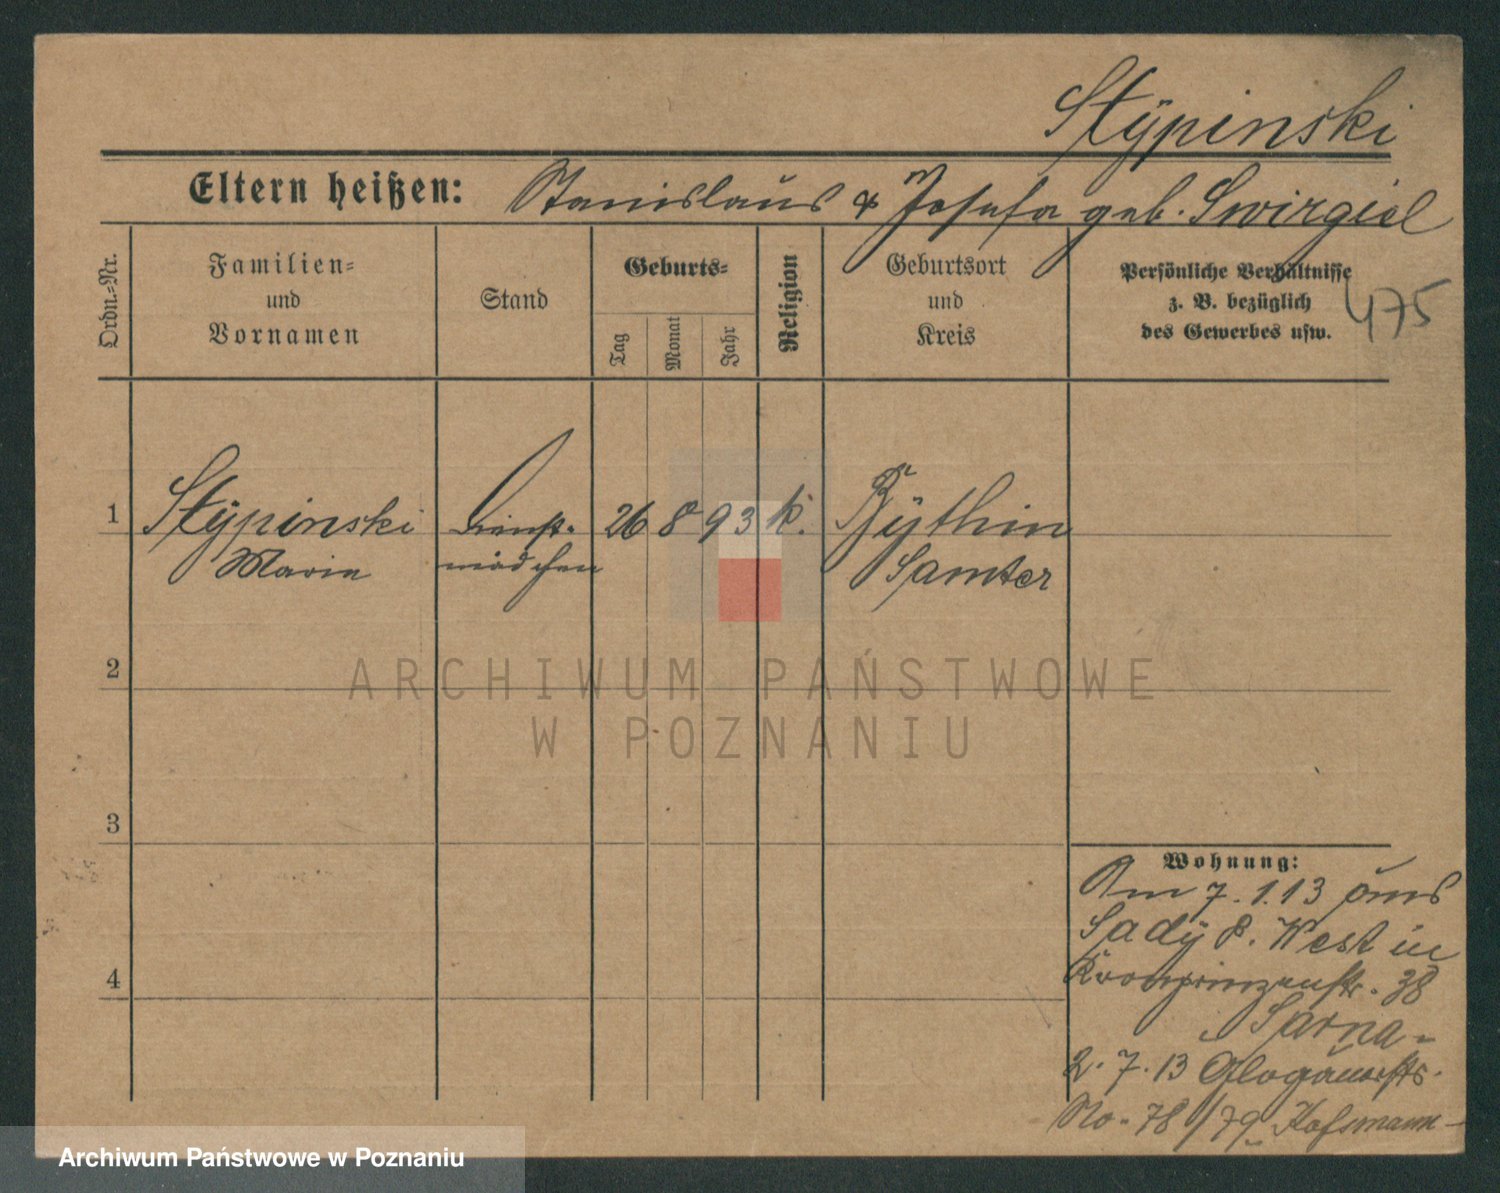 Stÿpinski
Eltern heißen: Stanislaus & Josefa geb. Swirgiel
Ordn.-Nr.
Familien=
und
Vornamen
Stand
Geburts=
Tag
Monat
Jahr
Religion
Geburtsort
und
Kreis
Persönliche Verhältnisse
z. B. bezüglich
des Gewerbes usw.
475
1 Stÿpinski Dienst- 26 8 93 k. Bÿthin
Marie mädchen Samter
2
3
4
Wohnung:
Am 7.1.13 aus
Sadÿ P. West in
Kronprinzenstr. 38
Sarna-
2.7.13 Glogauerstr.
No. 78/79 Hofsmann-
ARCHIWUM PAŃSTWOWE
W POZNANIU
Archiwum Państwowe w Poznaniu